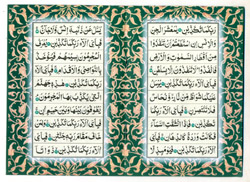 رَبِّكُمَا تُكَذِّبٰنِ يٰمَعْشَرَ الْجِنِّ
وَالْاِنْسِ اِنِ اسْتَطَعْتُمْ اَنْ تَنْفُذُوْا
مِنْ اَقْطَارِ السَّمٰوٰتِ وَالْاَرْضِ
فَانْفُذُوْا لَا تَنْفُذُوْنَ اِلَّا بِسُلْطٰنٍ
فَبِاَيِّ اٰلَآءِ رَبِّكُمَا تُكَذِّبٰنِ يُرْسَلُ
عَلَيْكُمَا شُوَاظٌ مِّنْ نَّارٍ وَّنُحَاسٌ فَلَا
تَنْتَصِرٰنِ فَبِاَيِّ اٰلَآءِ رَبِّكُمَا
تُكَذِّبٰنِ فَاِذَا انْشَقَّتِ السَّمَآءُ
فَكَانَتْ وَرْدَةً كَالدِّهَانِ فَبِاَيِّ
اٰلَآءِ رَبِّكُمَا تُكَذِّبٰنِ فَيَوْمَئِذٍ لَّا
يُسْئَلُ عَنْ ذَنْۢبِهٖٓ اِنْسٌ وَّلَا جَآنٌّ
فَبِاَيِّ اٰلَآءِ رَبِّكُمَا تُكَذِّبٰنِ يُعْرَفُ
الْمُجْرِمُوْنَ بِسِيْمٰهُمْ فَيُؤْخَذُ
بِالنَّوَاصِيْ وَالْاَقْدَامِ فَبِاَيِّ اٰلَآءِ
رَبِّكُمَا تُكَذِّبٰنِ هٰذِهٖ جَهَنَّمُ
الَّتِيْ يُكَذِّبُ بِهَا الْمُجْرِمُوْنَ
يَطُوْفُوْنَ بَيْنَهَا وَبَيْنَ حَمِيْمٍ اٰنٍ
فَبِاَيِّ اٰلَآءِ رَبِّكُمَا تُكَذِّبٰنِ وَلِمَنْ
خَافَ مَقَامَ رَبِّهٖ جَنَّتٰنِ فَبِاَيِّ
اٰلَآءِ رَبِّكُمَا تُكَذِّبٰنِ ذَوَاتَآ